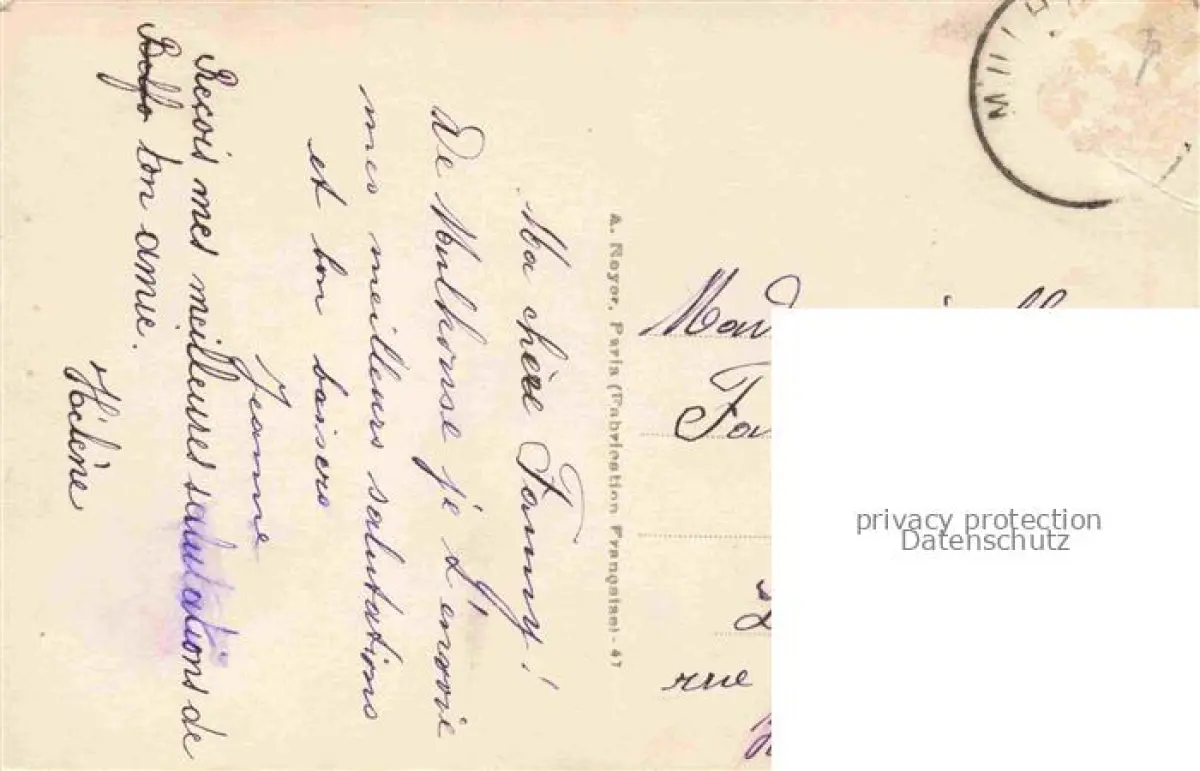 Ma chère Fanny!
De Mulhouse je t'envoie
mes meilleurs salutations
et bon baisers
Jeanne
Reçois mes meilleures salutations de
ton amie.
Hélène
A. Noyer, Paris (Fabrication Française) - 47
MUL
rue
privacy protection
Datenschutz